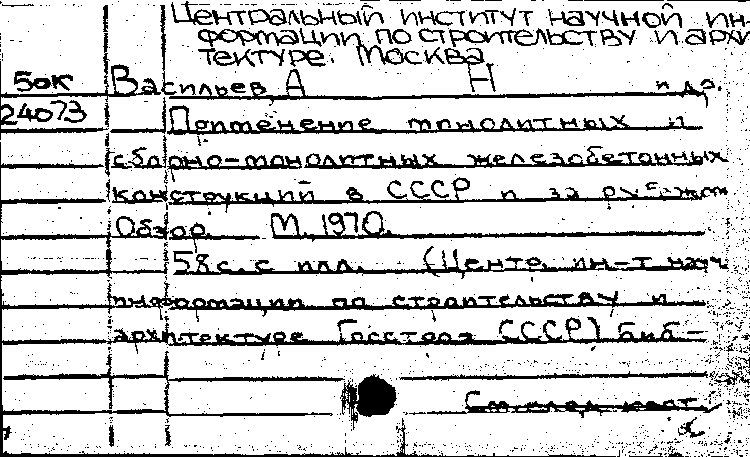 Центральный институт научной ин-
формации по строительству и архи
тектуре. Москва.
50к Васильев, А Н и др.
24073 Применение монолитных и
сборно-монолитных железобетонных
конструкций в СССР и за рубежом
Обзор. М., 1970.
58 с. с илл. (Центр. ин-т науч.
информации по строительству и
архитектуре Госстроя СССР) Биб-
См. след. карт.